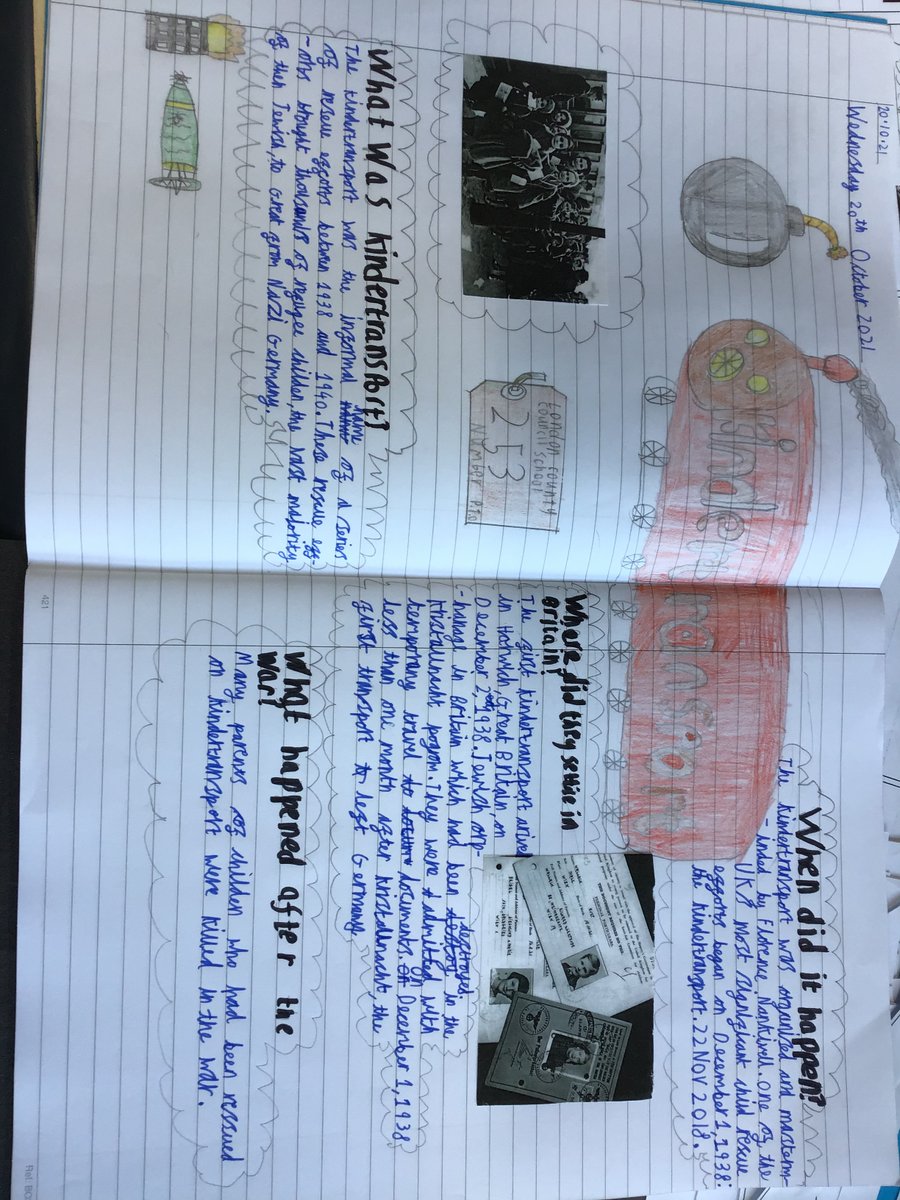 20.10.21
Wednesday 20th October 2021
Kindertransport
London county
council school
253
Number
What was kindertransport?
The kindertransport was the informal name of a series
of rescue effotrs between 1938 and 1940. These rescue eff-
-otrs brought thousands of refugee childen, the vast majority
of then Jewish, to Great from Nazi Germany.
When did it happen?
The kindertransport was organised and masterm-
- inded by Florence Nankivell. One of the
UK's most signifciant child rescue
effotrs began on December 1, 1938:
the kindertransport. 22 Nov 2018.
Where did they settle in
Britain?
The first kindertransport arived
in Harwich, Great Britain, on
December 2nd, 1938. Jewish orp
-hanage in Britain which had been destroyed in the
Kristallnacht pogrom. They were admitted with
temporary travel to documents. December 1, 1938
less than one month after kristallnacht, the
first transport to left Germany.
What happened after the
war?
Many parenes of childen who had been rescued
on kindertransport were killed in the war.
421